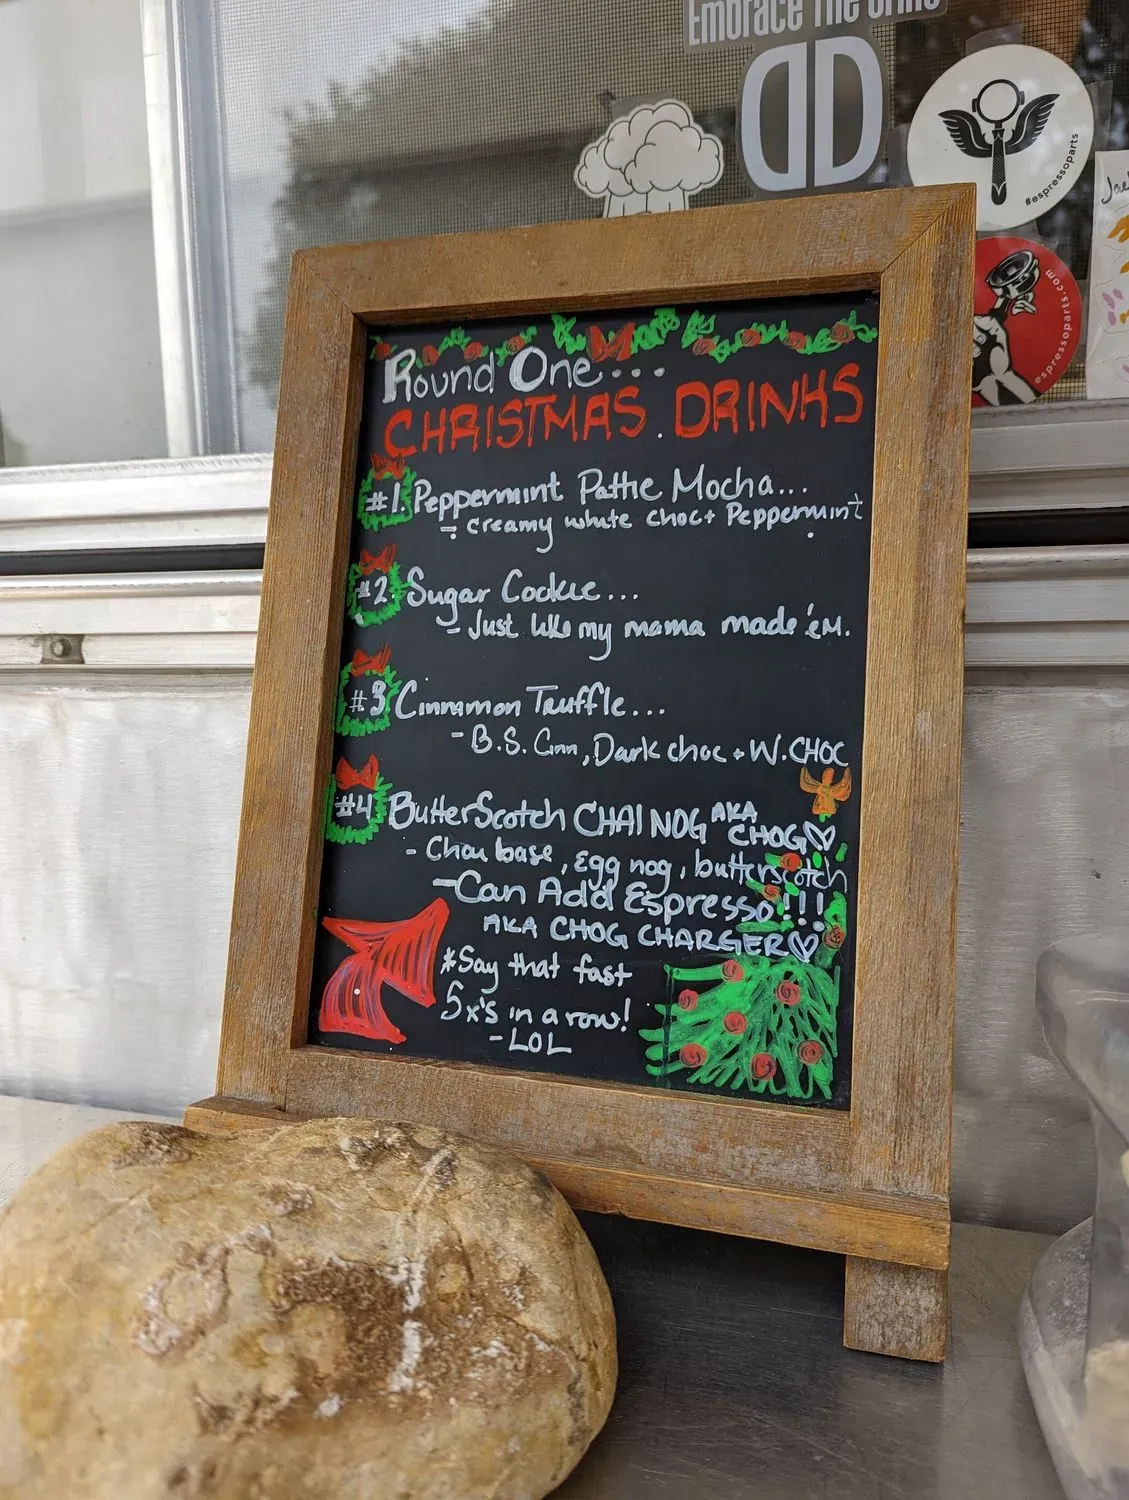 Embrace The Grind
#espressoparts
espressoparts.com
Round One...
CHRISTMAS DRINKS
#1. Peppermint Pattie Mocha...
- creamy white choc + Peppermint
#2. Sugar Cookie...
- Just like my mama made 'em.
#3 Cinnamon Truffle...
- B.S. Cinn, Dark choc + W. CHOC
#4 ButterScotch CHAI NOG AKA
CHOG
- Chai base, egg nog, butterscotch
- Can Add Espresso!!!
AKA CHOG CHARGER
*Say that fast
5x's in a row!
- LOL